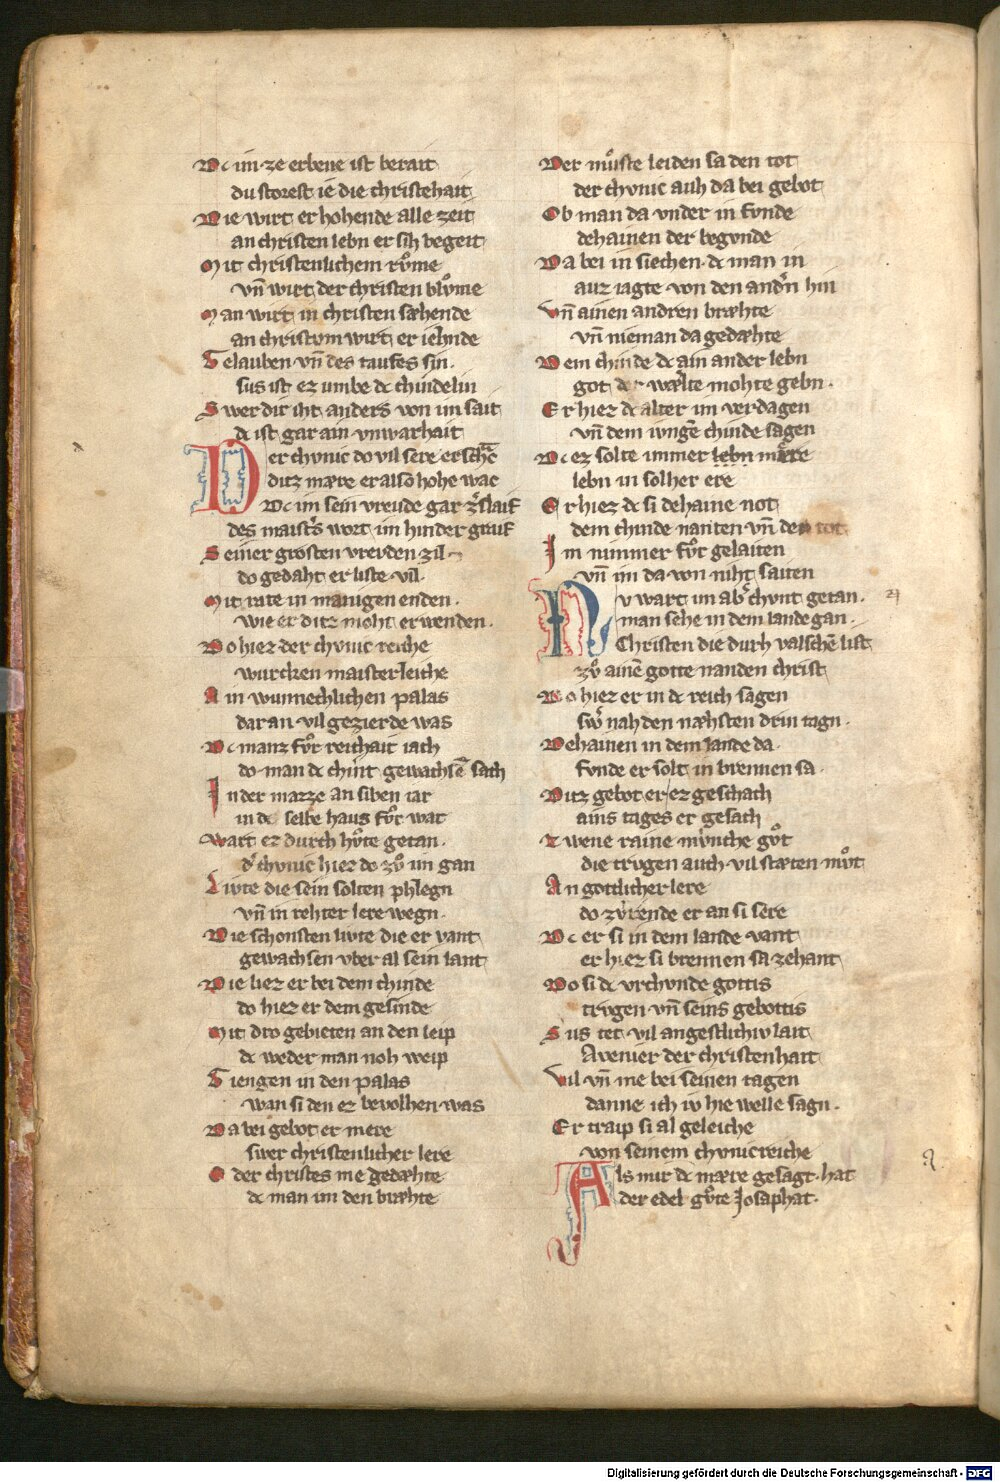 Dc im ze erbene ist berait
du storest ie die christehait
Die wirt er hohende alle zeit
an christen lebn er sih begeit
Mit christenlichem růme
vn̄ wirt der christen blůme
Man wirt in christen sæhende
an christum wirt er iehnde
Gelauben vn̄ des taufes sin.
sus ist ez umbe dc chindelin
Swer dir iht anders von im sait
dc ist gar ain vnwarhait
Der chvnic do vil sere erschc̄
ditz mære er also hohe wac
Dc im sein vreude gar zᷓslaif
des maistᷓs wort im hinder graif
Seiner grosten vrevden zil
do gedaht er liste vil.
Mit rate in manigen enden.
wie er ditz moht erwenden.
Do hiez der chvnic reiche
wurchen maisterleiche
Ain wunnechlichen palas
daran vil gezierde was
Dc manz fůr reichait iach
do man dc chint gewachsē sach
In der mazze an siben iar
in dc selbe haus fůr war
Wart ez durch hůte getan.
dᷓ chvnic hiez do zů im gan
Livte die sein solten phlegn
vn̄ in rehter lere wegn.
Die schonsten livte die er vant
gewachsen vber al sein lant
Die liez er bei dem chinde
do hiez er dem gesinde
Mit dro gebieten an den leip
dc weder man noh weip
Giengen in den palas
wan si den ez bevolhen was
Da bei gebot er mere
swer christenlicher lere
Oder christes me gedæhte
dc man im den bræhte
Der můste leiden sa den tot
der chvnic auh da bei gebot
Ob man da vnder in fvnde
dehainen der begvnde
Da bei in siechen dc man in
auz iagte von den andᷓn hin
Vn̄ ainen andren bræhte
vn̄ nieman da gedæhte
Dem chinde dc ain ander lebn
got der wærlte mohte gebn.
Er hiez dc alter im verdagen
vn̄ dem iungē chinde sagen
Dc ez solte immer lebn mære
lebn in solher ere
Er hiez dc si dehaine not
dem chinde nanten vn̄ den tot
Im nimmer fůr gelaiten
vn̄ im da von niht saiten
Nv wart im abᷓ chvnt getan.
man sehe in dem lande gan.
Christen die durh valschē list
zů ainē gotte nanden christ
Do hiez er in dc reich sagen
swᷓ nah den næhsten drin tagn.
Dehainen in dem lande da.
fvnde er solt in brennen sa.
Ditz gebot er ez geschach
ains tages er gesach
Zwene raine mvnche gůt
die trvgen auch vil stæten můt
An gottlicher lere
do zvrende er an si sere
Dc er si in dem lande vant
er hiez si brennen sa zehant
Do si dc vrchvnde gottis
trvgen vn̄ seins gebottis
Sus tet vil angestlichiv lait
Avenier der christenhait
Vil vn̄ me bei seinen tagen
danne ich iv hie welle sagn.
Er traip si al geleiche
von seinem chvnicreiche
Als mir dc mære gesagt hat
der edel gůte Josaphat.
Digitalisierung gefördert durch die Deutsche Forschungsgemeinschaft - DFG